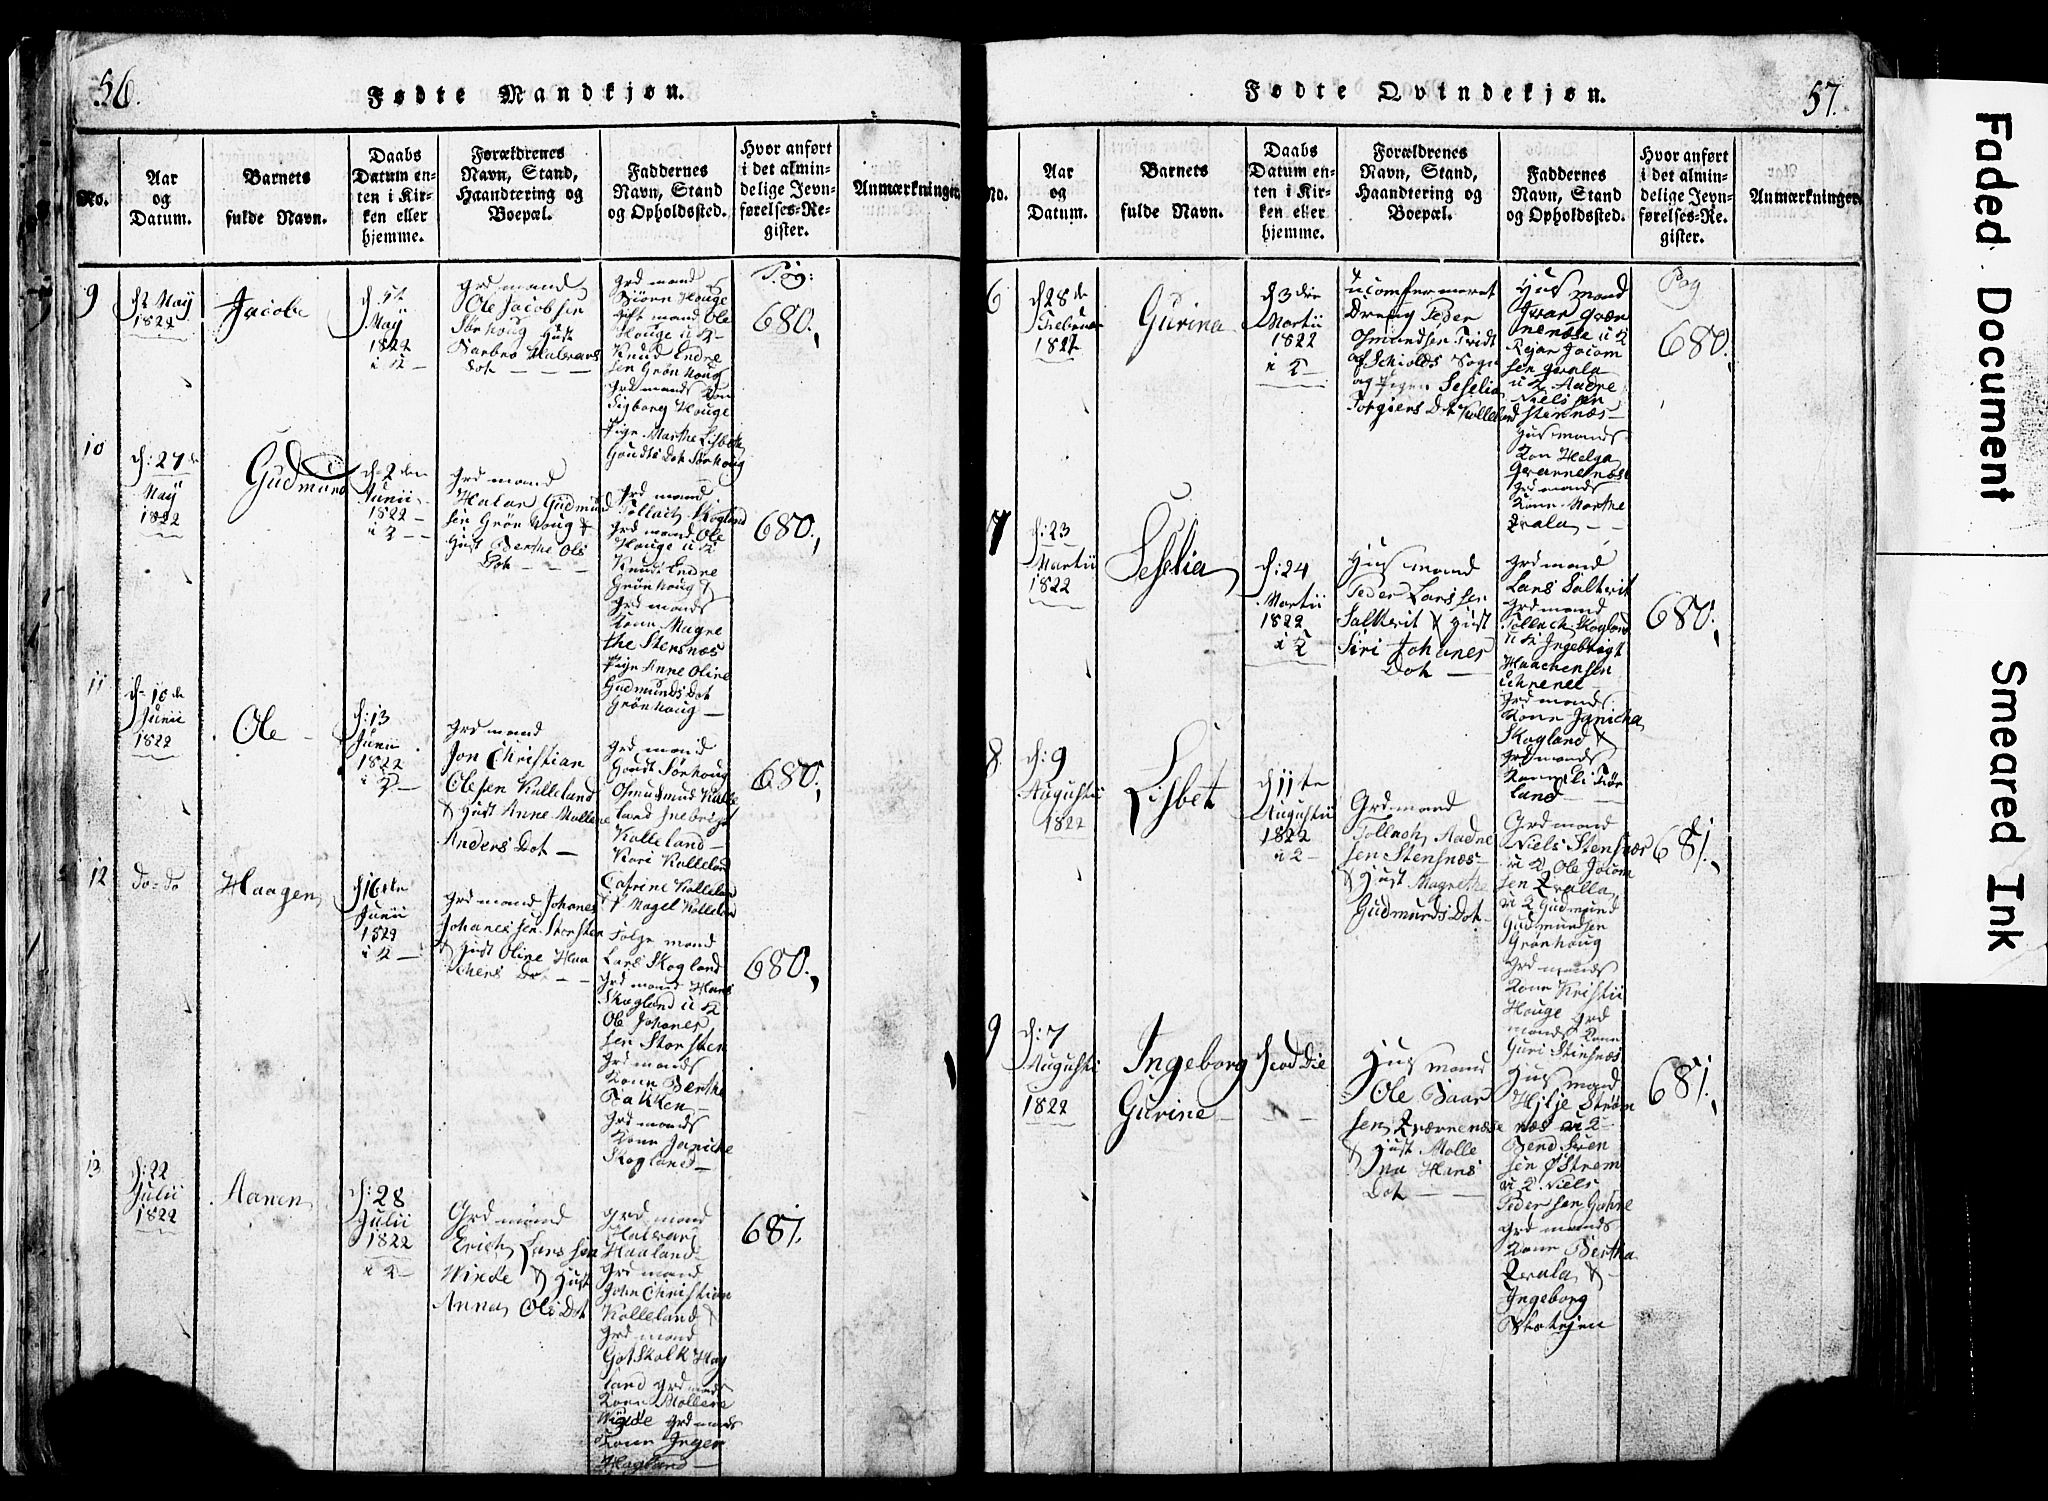 56.
Fødte Mandkjøn.
No.
Aar
og
Datum.
Barnets
fulde Navn.
Daabs
Datum en-
ten i Kir-
ken eller
hjemme.
Forældrenes
Navn, Stand,
Haandtering og
Boepæl.
Faddernes
Navn, Stand
og Opholdssted.
Hvor anført
i det almin-
delige Jevn-
førelses-Re-
gister.
Anmærkninger.
9
May
1822
Jacob
May
1822
grd mand
Ole Jacobsen
Sørhoug
Barbro Halvars
Dot
grd mand
Biørn Houge
gift mand Ole
Houge u K
Knud Endre
sen Grønhoug
grd mands Kon
Sigborg Houge
Pige Marthe Lisbeth
Goudts Dot Sørhoug
Pag:
680.
10
d: 27
May
1822
Gudmund
d. 2den
Junii
1822
grd mand
Halvar Gudmund
sen Grønhoug &
Hust Berthe Ols
Dot
grd mand
Tollach Skogland
grd mand Ole
Houge u K
Knud Endre
Grønhoug &
grd mands
Kone Magre
the Stensnæs
Pige Anne Oline
Gudmunds Dot
Grønhoug
680.
11
d. 10de
Junii
1822
Ole
d: 13
Junii
1822
grd mand
Jon Christian
Olesen Kolleland
& Hust Anne Malene
Anders Dot
grd mand
Goudt Sørhoug
Osmund Kolle
land Inebrigt
Kolleland
Kari Kolleland
Catrine Kolleland
& Magel Kolleland
680.
12
do-do
Haagen
d 16ten
Junii
1822
grd mand Johanes
Johanessen Storsten
& Hust Oline Haa
chens Dot
Følge mand
Lars Skogland
grd mand Hans
Skogland u K
Ole Johanes
sen Storsten
grd mands
Kone Berthe
Bakken
grd mands
Kone Janiche
Skogland
680.
13
d: 22
Julii
1822
Aanen
d: 28
Julii
1822
Grd mand
Erich Larssen
Winde & Hust
Anna Ols Dot
grd mand
Halvar
Haaland
Grd mand
John Christian
Kolleland &
Grd mand
Gotskalk Hag
land grd mands
Kone Mollene
Winde grd mands
Kone Inger
Hagland
681.
57.
Fødte Qvindekjøn.
No.
Aar
og
Datum.
Barnets
fulde Navn.
Daabs
Datum en-
ten i Kir-
ken eller
hjemme.
Forældrenes
Navn, Stand,
Haandtering og
Boepæl.
Faddernes
Navn, Stand
og Opholdssted.
Hvor anført
i det almin-
delige Jevn-
førelses-Re-
gister.
Anmærkninger.
6
d 28de
Febru
1822
Gurina
d 3die
Martii
1822
uconfermeret
Dreng Peder
Osmundsen Tvidt
af Schiolds Sogn
og Pigen Seselia
Torgiers Dot Kolleland
Hus mand
Ivar Qvær
nenæse u K
Rejar Jocom
sen Qvala
u K Aadne
Nielssen
Stensnæs
Hus mands
Kon Helga
Qvernenæse
grd mands
Kone Marthe
Qvala
Pag
680.
7
d: 23
Martii
1822
Seselia
d: 24
Martii
1822
Hus mand
Peder Larssen
Saltvit & Hust
Siri Johanes
Dot
grd mand
Lars Saltvit
grd mand
Tollach Skogland
u K Ingebrigt
Haachensen
grd mands
Kone Janicha
Skogland &
grd mands
Kone
land
680.
8.
d: 9
Augustii
1822
Lisbet
d 11te
Augustii
1822
Grd mand
Tollach Aadne
sen Stensnæs
& Hust Magrethe
Gudmunds Dot
Grd mand
Niels Stensnæs
u K Ole Jocom
sen Qvalla
u K Gudmund
Gudmundsen
Grønhoug
Grd mands
Kone Kristii
Houge grd
mands Kone
Guri Stensnæs
681.
9
d: 7
Augusti
1822
Ingeborg
Gurine
Hus mand
Ole Baar
sen Qværnenæse
& Hust Malle
na Hans
Dot
Hus mand
Hilje Strøm
næs u K
Bend Sven
sen Østrem
u K Niels
Pedersen
grd mands
Kone Bertha
Qvala &
Ingeborg
681.
Faded Document
Smeared Ink